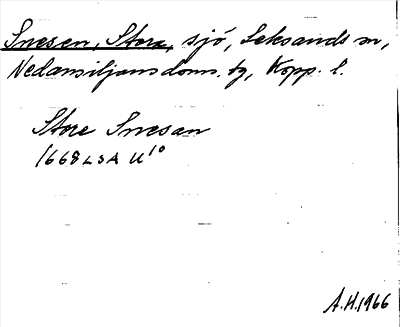 Snesen, Stora, sjö, Leksands sn,
Nedansiljans doms. tg, Kopp. l.
Store Snesan
1668 LSA U¹⁰
A.H. 1966